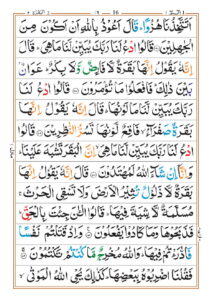 اَتَتَّخِذُنَا هُزُوًا ؕ قَالَ اَعُوْذُ بِاللّٰهِ اَنْ اَكُوْنَ مِنَ
الْجٰهِلِيْنَ ۝ قَالُوا ادْعُ لَنَا رَبَّكَ يُبَيِّنْ لَّنَا مَا هِيَ ؕ قَالَ
اِنَّهٗ يَقُوْلُ اِنَّهَا بَقَرَةٌ لَّا فَارِضٌ وَّلَا بِكْرٌ ؕ عَوَانٌۢ
بَيْنَ ذٰلِكَ ؕ فَافْعَلُوْا مَا تُؤْمَرُوْنَ ۝ قَالُوا ادْعُ لَنَا
رَبَّكَ يُبَيِّنْ لَّنَا مَا لَوْنُهَا ؕ قَالَ اِنَّهٗ يَقُوْلُ اِنَّهَا
بَقَرَةٌ صَفْرَآءُ ۙ فَاقِعٌ لَّوْنُهَا تَسُرُّ النّٰظِرِيْنَ ۝ قَالُوا
ادْعُ لَنَا رَبَّكَ يُبَيِّنْ لَّنَا مَا هِيَ ۙ اِنَّ الْبَقَرَ تَشٰبَهَ عَلَيْنَا ؕ
وَاِنَّآ اِنْ شَآءَ اللّٰهُ لَمُهْتَدُوْنَ ۝ قَالَ اِنَّهٗ يَقُوْلُ اِنَّهَا
بَقَرَةٌ لَّا ذَلُوْلٌ تُثِيْرُ الْاَرْضَ وَلَا تَسْقِى الْحَرْثَ ۚ
مُسَلَّمَةٌ لَّا شِيَةَ فِيْهَا ؕ قَالُوا الْـٰٔنَ جِئْتَ بِالْحَقِّ ؕ
فَذَبَحُوْهَا وَمَا كَادُوْا يَفْعَلُوْنَ ۝ وَاِذْ قَتَلْتُمْ نَفْسًا
فَادّٰرَءْتُمْ فِيْهَا ؕ وَاللّٰهُ مُخْرِجٌ مَّا كُنْتُمْ تَكْتُمُوْنَ ۝
فَقُلْنَا اضْرِبُوْهُ بِبَعْضِهَا ؕ كَذٰلِكَ يُحْيِ اللّٰهُ الْمَوْتٰى ۙ